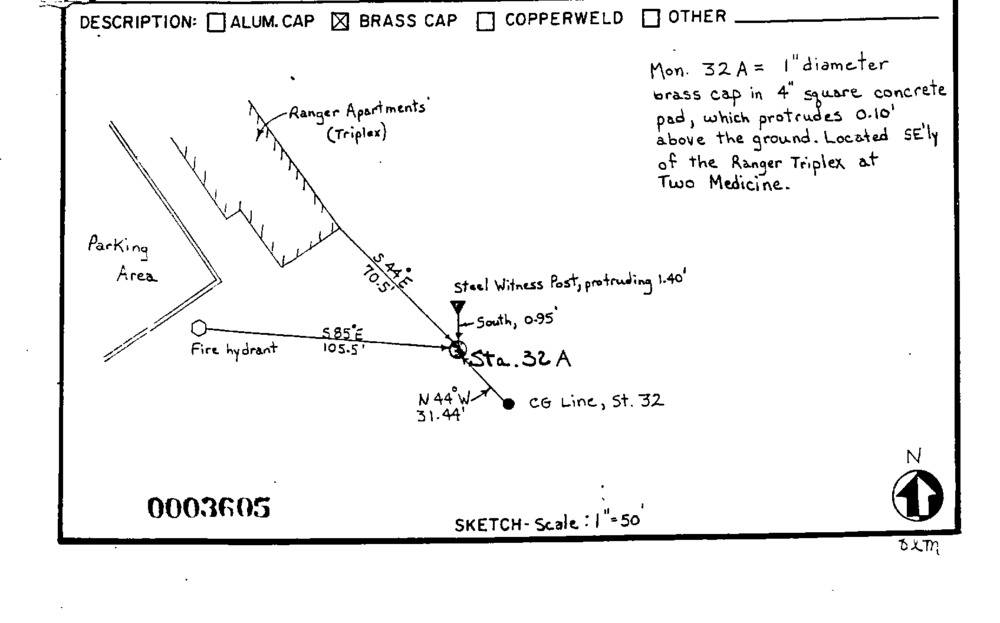 DESCRIPTION: ☐ ALUM. CAP ☒ BRASS CAP ☐ COPPERWELD ☐ OTHER
Mon. 32 A = 1" diameter
brass cap in 4" square concrete
pad, which protrudes 0.10'
above the ground. Located SE'ly
of the Ranger Triplex at
Two Medicine.
Ranger Apartments
(Triplex)
Parking
Area
S 44° E
70.5'
Steel Witness Post, protruding 1.40'
South, 0.95'
S 85° E
105.5'
Fire hydrant
Sta. 32 A
N 44° W
31.44'
CG Line, St. 32
N
0003605
SKETCH - Scale : 1" = 50'